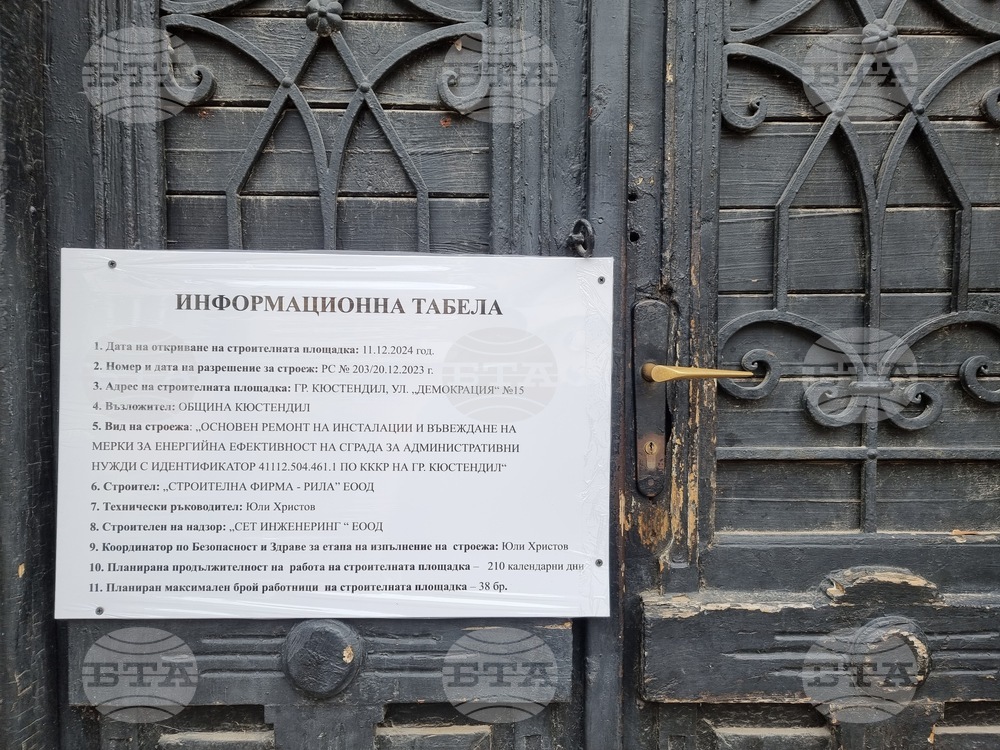 ИНФОРМАЦИОННА ТАБЕЛА
1. Дата на откриване на строителната площадка: 11.12.2024 год.
2. Номер и дата на разрешение за строеж: РС № 203/20.12.2023 г.
3. Адрес на строителната площадка: ГР. КЮСТЕНДИЛ, УЛ. „ДЕМОКРАЦИЯ“ №15
4. Възложител: ОБЩИНА КЮСТЕНДИЛ
5. Вид на строежа: „ОСНОВЕН РЕМОНТ НА ИНСТАЛАЦИИ И ВЪВЕЖДАНЕ НА
МЕРКИ ЗА ЕНЕРГИЙНА ЕФЕКТИВНОСТ НА СГРАДА ЗА АДМИНИСТРАТИВНИ
НУЖДИ С ИДЕНТИФИКАТОР 41112.504.461.1 ПО КККР НА ГР. КЮСТЕНДИЛ“
6. Строител: „СТРОИТЕЛНА ФИРМА - РИЛА” ЕООД
7. Технически ръководител: Юли Христов
8. Строителен на надзор: „СЕТ ИНЖЕНЕРИНГ “ ЕООД
9. Координатор по Безопасност и Здраве за етапа на изпълнение на строежа: Юли Христов
10. Планирана продължителност на работа на строителната площадка – 210 календарни дни
11. Планиран максимален брой работници на строителната площадка – 38 бр.
БТА
БТА
БТА
БТА
БТА
БТА
БТА
БТА